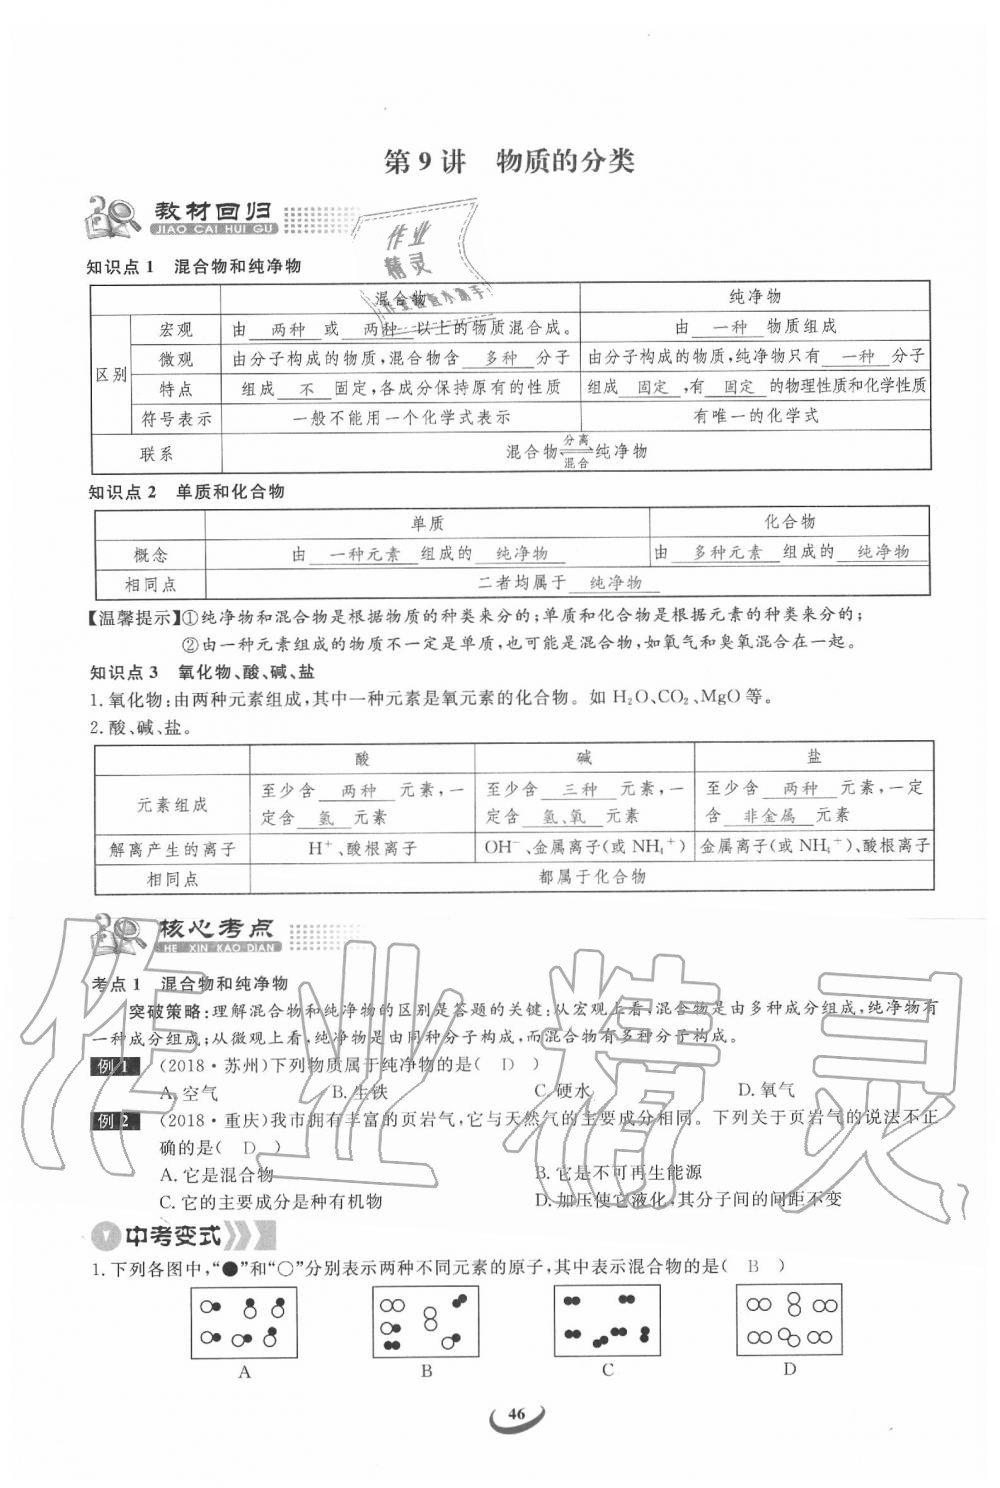 第 9 讲 物质的分类
教材回归
JIAO CAI HUI GU
作业
精灵
知识点 1 混合物和纯净物
混合物 纯净物
区别 宏观 由 两种 或 两种 以上的物质混合成。 由 一种 物质组成
微观 由分子构成的物质,混合物含 多种 分子 由分子构成的物质,纯净物只有 一种 分子
特点 组成 不 固定,各成分保持原有的性质 组成 固定 ,有 固定 的物理性质和化学性质
符号表示 一般不能用一个化学式表示 有唯一的化学式
联系 混合物 分离 混合 纯净物
知识点 2 单质和化合物
单质 化合物
概念 由 一种元素 组成的 纯净物 由 多种元素 组成的 纯净物
相同点 二者均属于 纯净物
【温馨提示】①纯净物和混合物是根据物质的种类来分的;单质和化合物是根据元素的种类来分的;
②由一种元素组成的物质不一定是单质,也可能是混合物,如氧气和臭氧混合在一起。
知识点 3 氧化物、酸、碱、盐
1. 氧化物:由两种元素组成,其中一种元素是氧元素的化合物。如 H₂O、CO₂、MgO 等。
2. 酸、碱、盐。
酸 碱 盐
元素组成 至少含 两种 元素,一定含 氢 元素 至少含 三种 元素,一定含 氢、氧 元素 至少含 两种 元素,一定含 非金属 元素
解离产生的离子 H⁺、酸根离子 OH⁻、金属离子(或 NH₄⁺) 金属离子(或 NH₄⁺)、酸根离子
相同点 都属于化合物
核心考点
HE XIN KAO DIAN
考点 1 混合物和纯净物
突破策略:理解混合物和纯净物的区别是答题的关键:从宏观上看,混合物是由多种成分组成,纯净物有
一种成分组成;从微观上看,纯净物是由同种分子构成,而混合物有多种分子构成。
例 1 (2018·苏州)下列物质属于纯净物的是( D )
A. 空气 B. 生铁 C. 硬水 D. 氧气
例 2 (2018·重庆)我市拥有丰富的页岩气,它与天然气的主要成分相同。下列关于页岩气的说法不正
确的是( D )
A. 它是混合物 B. 它是不可再生能源
C. 它的主要成分是种有机物 D. 加压使它液化,其分子间的间距不变
中考变式
1. 下列各图中,“●”和“○”分别表示两种不同元素的原子,其中表示混合物的是( B )
A B C D
46
作业精灵